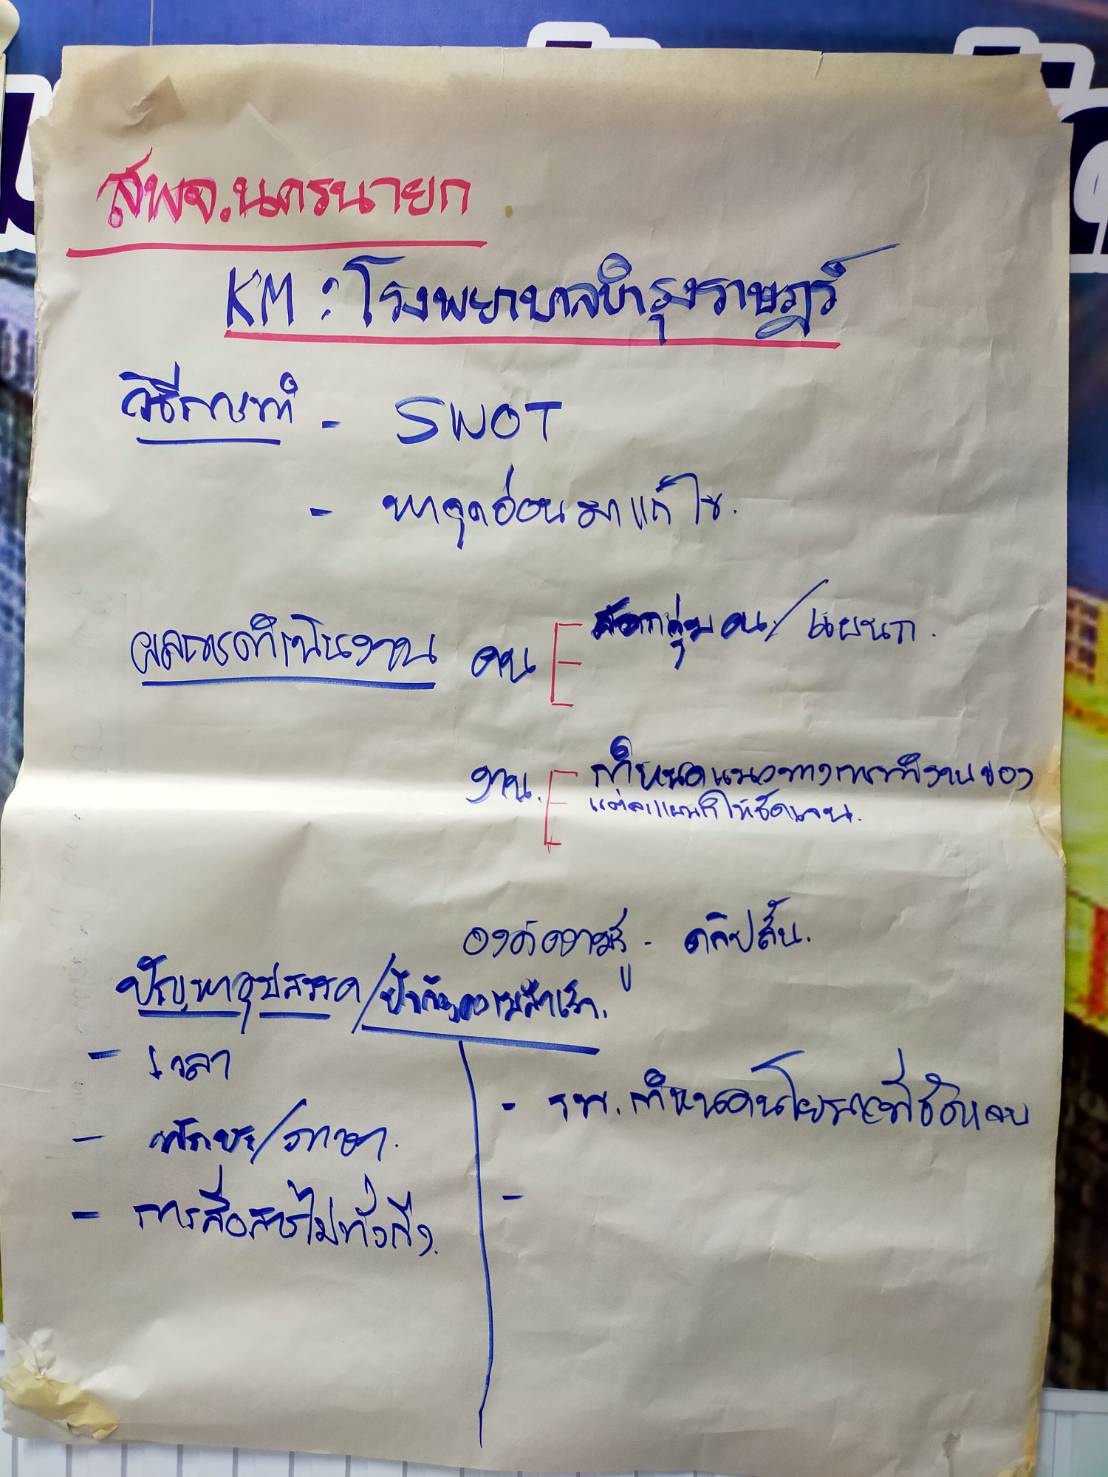 สพจ.นครนายก
KM : โรงพยาบาลบำรุงราษฎร์
วิธีการทำ - SWOT
- หาจุดอ่อนมาแก้ไข.
ผลการดำเนินงาน คน กลุ่มคน/แผนก.
งาน. กำหนดแนวทางการทำงานของ
แต่ละแผนกให้ชัดเจน.
องค์ความรู้ - คลิปสั้น.
ปัญหาอุปสรรค/ปัจจัยความสำเร็จ.
- เวลา
- รพ.กำหนดนโยบายที่ชัดเจน
- ทักษะ/ภาษา.
-
- การสื่อสารไม่ทั่วถึง.